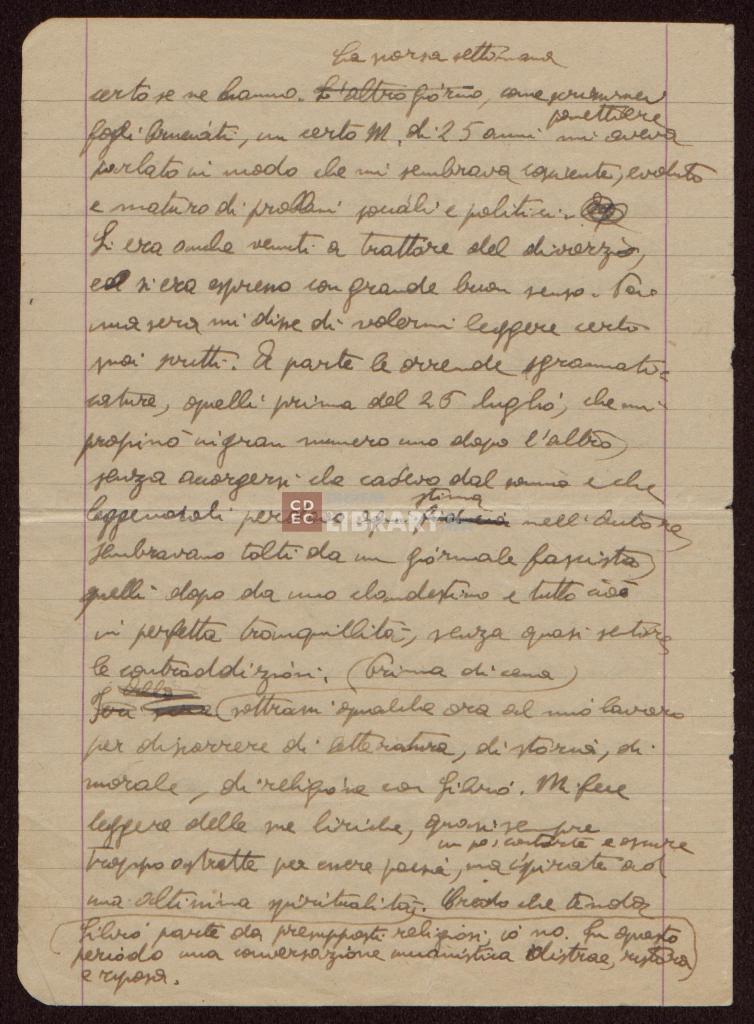 La scorsa settimana
certo se ne hanno. L'altro giorno, come
panettiere
fogli bruciati, un certo M. di 25 anni mi aveva
parlato in modo che mi sembrava cosciente, evoluto
e maturo di problemi sociali e politici.
Si era anche venuti a trattare del divorzio,
ed si era espresso con grande buon senso.
una sera mi disse di volermi leggere certi
suoi scritti. A parte le orrende sgrammati-
cature, quelli prima del 25 luglio, che mi
propinò in gran numero uno dopo l'altro
senza accorgersi che cadevo dal sonno e che
stima
leggendoli perdevo ogni nell'autore
sembravano tolti da un giornale fascista
quelli dopo da uno clandestino e tutto ciò
in perfetta tranquillità, senza quasi sentire
le contraddizioni. (Prima di cena
Ieri sera sottrassi qualche ora al mio lavoro
per discorrere di letteratura, di storia, di
morale, di religione con Silvio. Mi fece
leggere delle sue liriche, quasi sempre
un po' contorte e oscure
troppo astratte per essere poesia, ma ispirate ad
una altissima spiritualità. Credo che tenda
Silvio parte da presupposti religiosi, io no. In questo
periodo una conversazione umanistica distrae, ristora
e riposa.
CDEC
LIBRARY